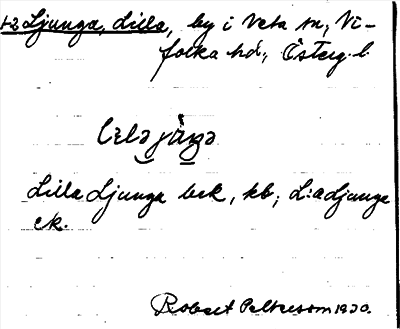 1-2 Ljunga, Lilla, by i Veta sn, Vi-
folka hd, Österg. l.
lɩlə jåŋə
Lilla Ljunga bek, kb; L:a Ljunga
ek.
Robert Pettersson 1930.